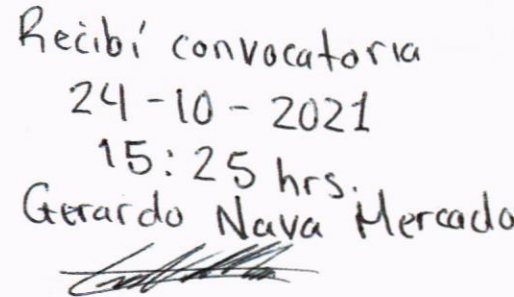 Recibí convocatoria
24-10-2021
15:25 hrs.
Gerardo Nava Mercado